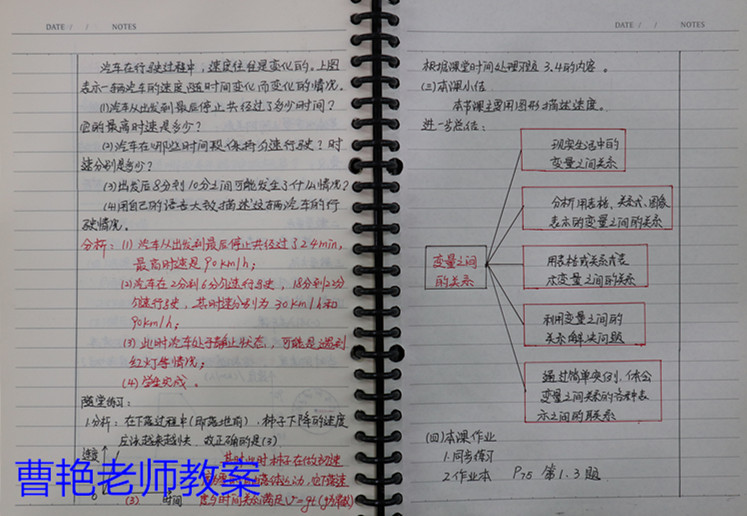 DATE / / NOTES
汽车在行驶过程中,速度往往是变化的。上图
表示一辆汽车的速度随时间变化而变化的情况。
(1)汽车从出发到最后停止共经过了多少时间?
它的最高时速是多少?
(2)汽车在哪些时间段保持匀速行驶?时
速分别是多少?
(3)出发后8分到10分之间可能发生了什么情况?
(4)用自己的语言大致描述这辆汽车的行
驶情况。
分析:(1)汽车从出发到最后停止共经过了24min,
最高时速是90km/h;
(2)汽车在2分到6分匀速行驶,18分到22分
匀速行驶,其时速分别为30km/h和
90km/h;
(3)此时汽车处于静止状态,可能是遇到
红灯等情况;
(4)学生完成。
随堂练习:
1.分析:在下落过程中(即落地前),种子下降的速度
应该越来越快,故正确的是(3)
速度
(3)
时间
度与时间关系满足V=gt
曹艳老师教案
DATE / / NOTES
根据课堂时间处理习题3.4的内容。
(三)本课小结
本节课主要用图形描述速度。
进一步总结:
变量之间
的关系
现实生活中的
变量之间关系
分析用表格、关系式、图像
表示的变量之间的关系
用表格或关系式表
示变量之间的关系
利用变量之间的
关系解决问题
通过简单实例,体会
变量之间关系的各种表
示之间的联系
(四)本课作业
1.同步练习
2.作业本 P75 第1.3题